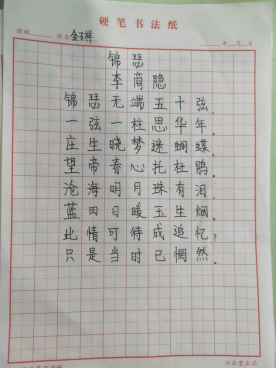 硬笔书法纸
姓名 金子祥
年 月 日
锦瑟
李商隐
锦瑟无端五十弦,
一弦一柱思华年。
庄生晓梦迷蝴蝶,
望帝春心托杜鹃。
沧海明月珠有泪,
蓝田日暖玉生烟。
此情可待成追忆?
只是当时已惘然。